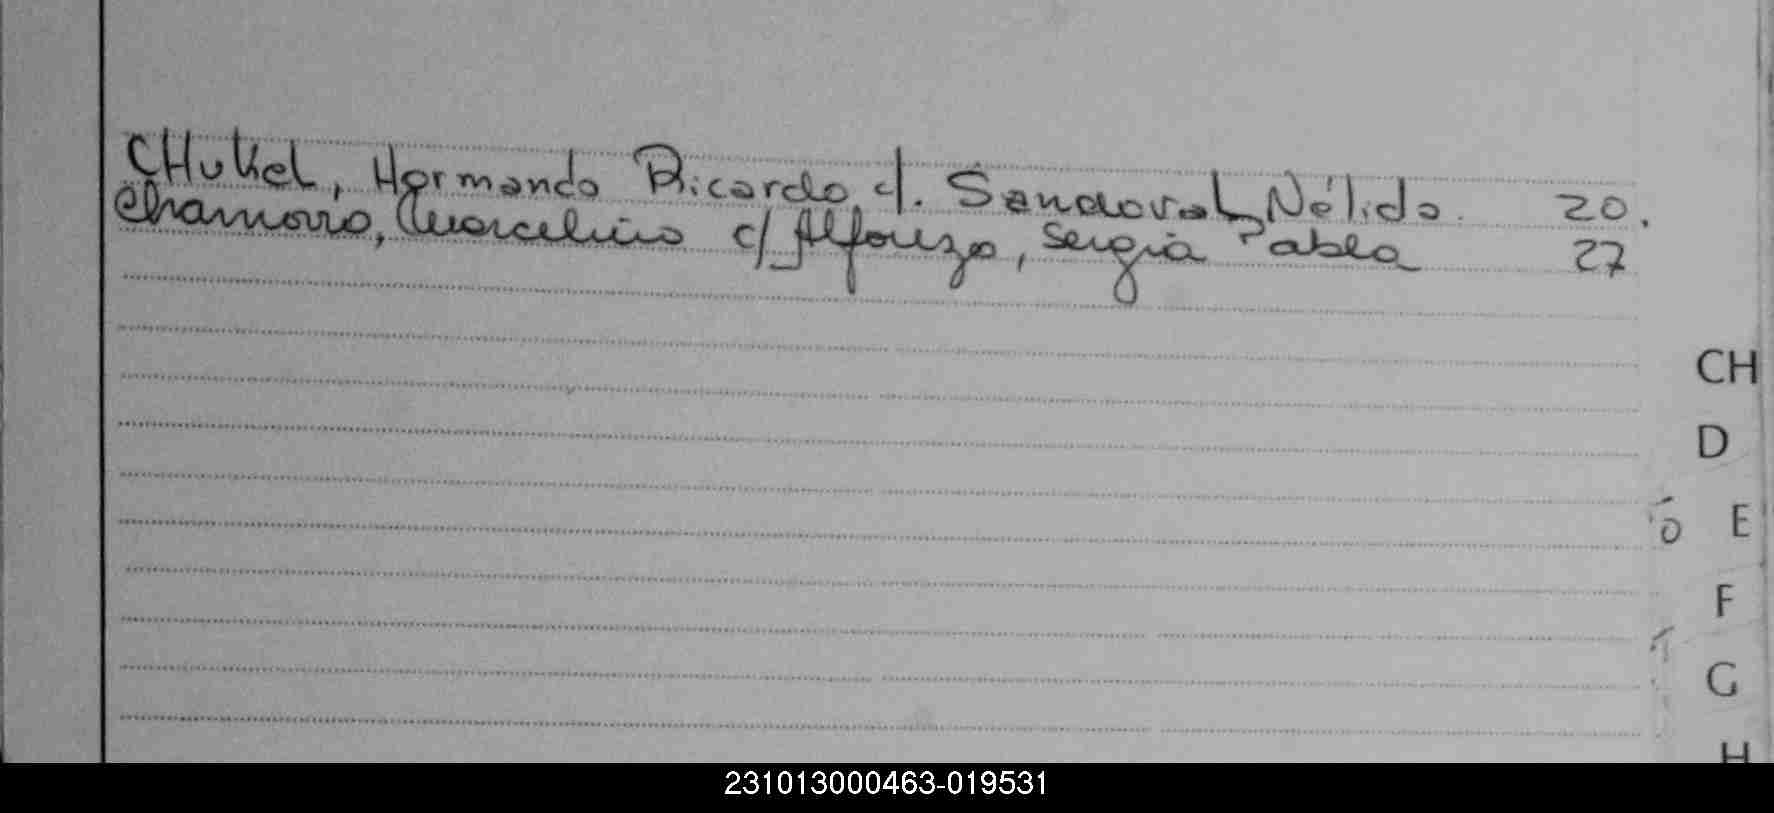 CHukel, Hormando Ricardo c/. Sandoval, Nélida. 20.
Chamorro, Marcelino c/ Alfonzo, Sergia Pabla 27
CH
D
E
F
G
H
231013000463-019531